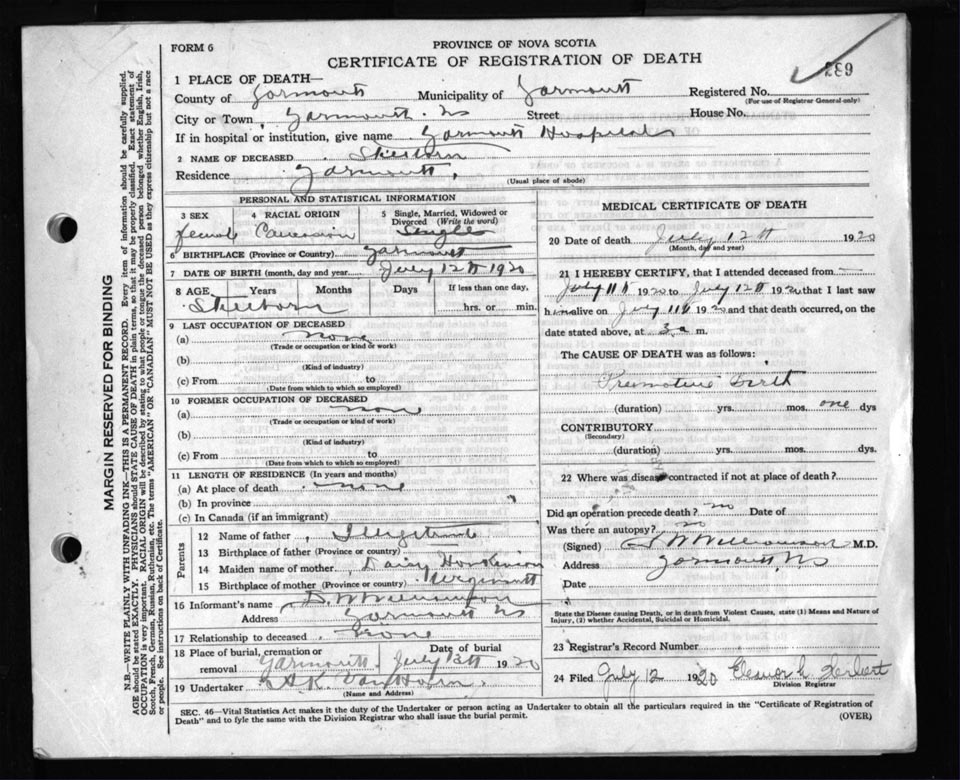 FORM 6
PROVINCE OF NOVA SCOTIA
CERTIFICATE OF REGISTRATION OF DEATH
1 PLACE OF DEATH—
County of Yarmouth Municipality of Yarmouth Registered No.
(For use of Registrar General only)
City or Town Yarmouth NS Street House No.
If in hospital or institution, give name Yarmouth Hospital
2 NAME OF DECEASED Stillborn
Residence Yarmouth
(Usual place of abode)
PERSONAL AND STATISTICAL INFORMATION
3 SEX 4 RACIAL ORIGIN 5 Single, Married, Widowed or Divorced (Write the word)
female Single
6 BIRTHPLACE (Province or Country) Yarmouth
7 DATE OF BIRTH (month, day and year) July 12th 1920
8 AGE Years Months Days If less than one day,
Stillborn hrs. or min.
9 LAST OCCUPATION OF DECEASED
(a) none
(Trade or occupation or kind or work)
(b)
(Kind of industry)
(c) From to
(Date from which to which so employed)
10 FORMER OCCUPATION OF DECEASED
(a) none
(Trade or occupation or kind of work)
(b)
(Kind of industry)
(c) From to
(Date from which to which so employed)
11 LENGTH OF RESIDENCE (In years and months)
(a) At place of death none
(b) In province
(c) In Canada (if an immigrant)
Parents
12 Name of father
13 Birthplace of father (Province or country)
14 Maiden name of mother Daisy
15 Birthplace of mother (Province or country)
16 Informant's name
Address Yarmouth NS
17 Relationship to deceased none
18 Place of burial, cremation or removal Date of burial
Yarmouth July 13th 1920
19 Undertaker
(Name and Address)
MEDICAL CERTIFICATE OF DEATH
20 Date of death July 12th 1920
(Month, day and year)
21 I HEREBY CERTIFY, that I attended deceased from
July 11th 1920 to July 12th 1920 that I last saw
h alive on July 11th 1920 and that death occurred, on the
date stated above, at 3a m.
The CAUSE OF DEATH was as follows:
Premature Birth
(duration) yrs. mos. one dys
CONTRIBUTORY
(Secondary)
(duration) yrs. mos. dys.
22 Where was disease contracted if not at place of death?
Did an operation precede death? no Date of
Was there an autopsy? no
(Signed) M.D.
Address Yarmouth, NS
Date
State the Disease causing Death, or in death from Violent Causes, state (1) Means and Nature of Injury, (2) whether Accidental, Suicidal or Homicidal.
23 Registrar's Record Number
24 Filed July 12 1920
Division Registrar
SEC. 46—Vital Statistics Act makes it the duty of the Undertaker or person acting as Undertaker to obtain all the particulars required in the "Certificate of Registration of
Death" and to fyle the same with the Division Registrar who shall issue the burial permit.
(OVER)
MARGIN RESERVED FOR BINDING
N.B.—WRITE PLAINLY WITH UNFADING INK—THIS IS A PERMANENT RECORD. Every item of information should be carefully supplied.
AGE should be stated EXACTLY. PHYSICIANS should STATE CAUSE OF DEATH in plain terms, so that it may be properly classified. Exact statement of
OCCUPATION is very important. RACIAL ORIGIN will be described by stating to what people or tongue the deceased person belonged whether English, Irish,
Scotch, French, German, Russian, Ruthenian, etc. The terms "AMERICAN" or "CANADIAN" MUST NOT BE USED as they express citizenship but not a race
or people. See instructions on back of Certificate.